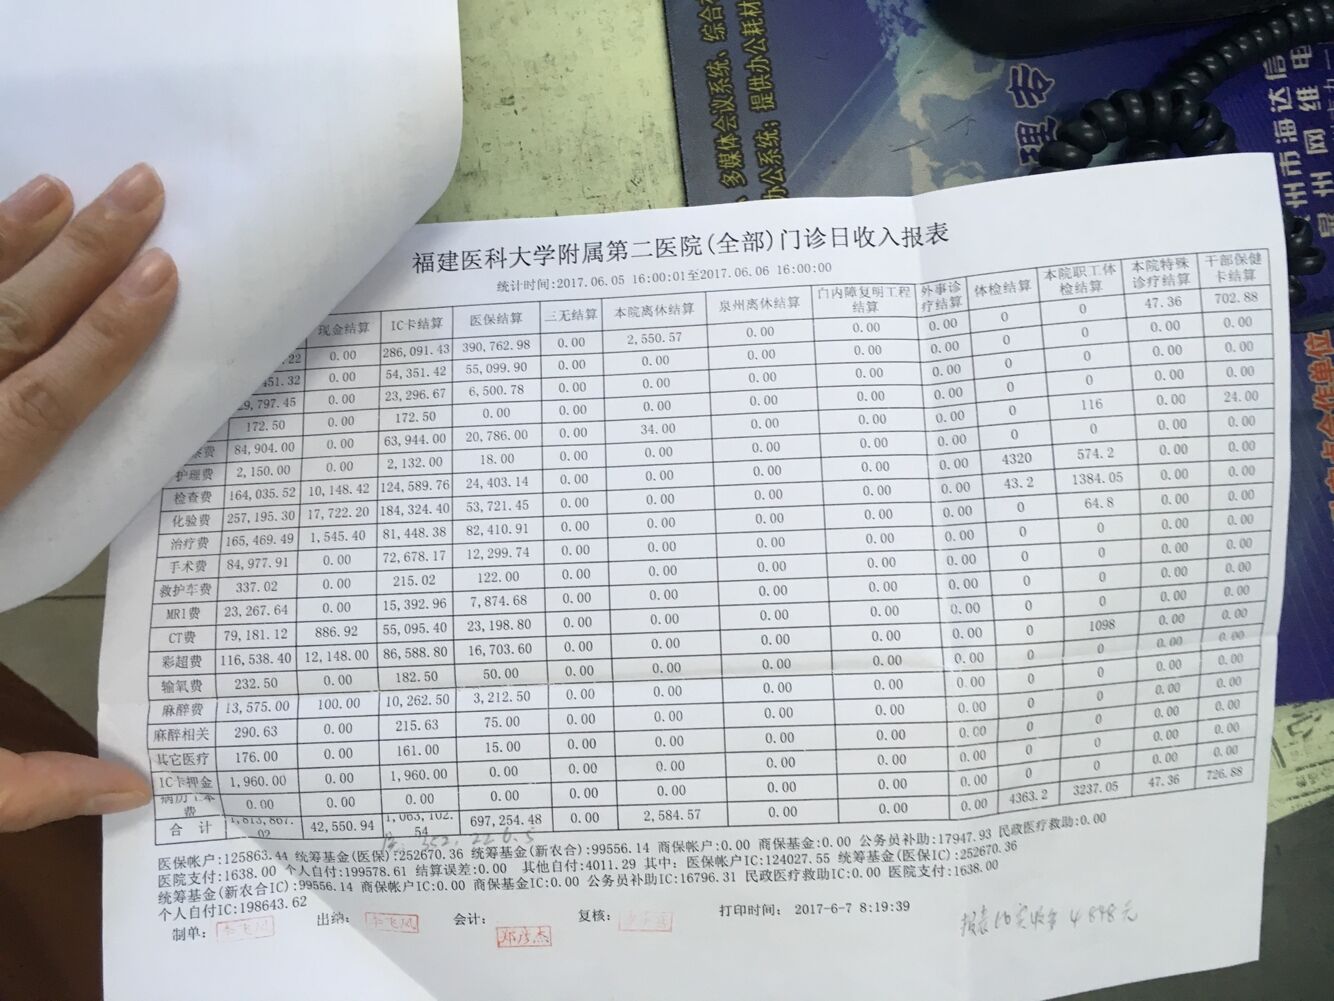 多媒体会议系统、综合
办公系统；提供办公耗材
理 专
州市海达信
泉州网维电
福建医科大学附属第二医院(全部)门诊日收入报表
统计时间:2017.06.05 16:00:01至2017.06.06 16:00:00
现金结算 IC卡结算 医保结算 三无结算 本院离休结算 泉州离休结算 白内障复明工程结算 外事诊疗结算 体检结算 本院职工体检结算 本院特殊诊疗结算 干部保健卡结算
.22 0.00 286,091.43 390,762.98 0.00 2,550.57 0.00 0.00 0.00 0 0 47.36 702.88
451.32 0.00 54,351.42 55,099.90 0.00 0.00 0.00 0.00 0.00 0 0 0.00 0.00
29,797.45 0.00 23,296.67 6,500.78 0.00 0.00 0.00 0.00 0.00 0 0 0.00 0.00
172.50 0.00 172.50 0.00 0.00 0.00 0.00 0.00 0.00 0 0 0.00 0.00
费 84,904.00 0.00 63,944.00 20,786.00 0.00 34.00 0.00 0.00 0.00 0 116 0.00 24.00
护理费 2,150.00 0.00 2,132.00 18.00 0.00 0.00 0.00 0.00 0.00 0 0 0.00 0.00
检查费 164,035.52 10,148.42 124,589.76 24,403.14 0.00 0.00 0.00 0.00 0.00 4320 574.2 0.00 0.00
化验费 257,195.30 17,722.20 184,324.40 53,721.45 0.00 0.00 0.00 0.00 0.00 43.2 1384.05 0.00 0.00
治疗费 165,469.49 1,545.40 81,448.38 82,410.91 0.00 0.00 0.00 0.00 0.00 0 64.8 0.00 0.00
手术费 84,977.91 0.00 72,678.17 12,299.74 0.00 0.00 0.00 0.00 0.00 0 0 0.00 0.00
救护车费 337.02 0.00 215.02 122.00 0.00 0.00 0.00 0.00 0.00 0 0 0.00 0.00
MRI费 23,267.64 0.00 15,392.96 7,874.68 0.00 0.00 0.00 0.00 0.00 0 0 0.00 0.00
CT费 79,181.12 886.92 55,095.40 23,198.80 0.00 0.00 0.00 0.00 0.00 0 0 0.00 0.00
彩超费 116,538.40 12,148.00 86,588.80 16,703.60 0.00 0.00 0.00 0.00 0.00 0 1098 0.00 0.00
输氧费 232.50 0.00 182.50 50.00 0.00 0.00 0.00 0.00 0.00 0 0 0.00 0.00
麻醉费 13,575.00 100.00 10,262.50 3,212.50 0.00 0.00 0.00 0.00 0.00 0 0 0.00 0.00
麻醉相关 290.63 0.00 215.63 75.00 0.00 0.00 0.00 0.00 0.00 0 0 0.00 0.00
其它医疗 176.00 0.00 161.00 15.00 0.00 0.00 0.00 0.00 0.00 0 0 0.00 0.00
IC卡押金 1,960.00 0.00 1,960.00 0.00 0.00 0.00 0.00 0.00 0.00 0 0 0.00 0.00
费 0.00 0.00 0.00 0.00 0.00 0.00 0.00 0.00 0.00 0 0 0.00 0.00
合 计 02 42,550.94 1,063,102.54 697,254.48 0.00 2,584.57 0.00 0.00 0.00 4363.2 3237.05 47.36 726.88
医保帐户:125863.44 统筹基金(医保):252670.36 统筹基金(新农合):99556.14 商保帐户:0.00 商保基金:0.00 公务员补助:17947.93 民政医疗救助:0.00
医院支付:1638.00 个人自付:199578.61 结算误差:0.00 其他自付:4011.29 其中: 医保帐户IC:124027.55 统筹基金(医保IC):252670.36
统筹基金(新农合IC):99556.14 商保帐户IC:0.00 商保基金IC:0.00 公务员补助IC:16796.31 民政医疗救助IC:0.00 医院支付:1638.00
个人自付IC:198643.62
制单: 出纳: 会计: 邓彦杰 复核: 打印时间: 2017-6-7 8:19:39
4898元